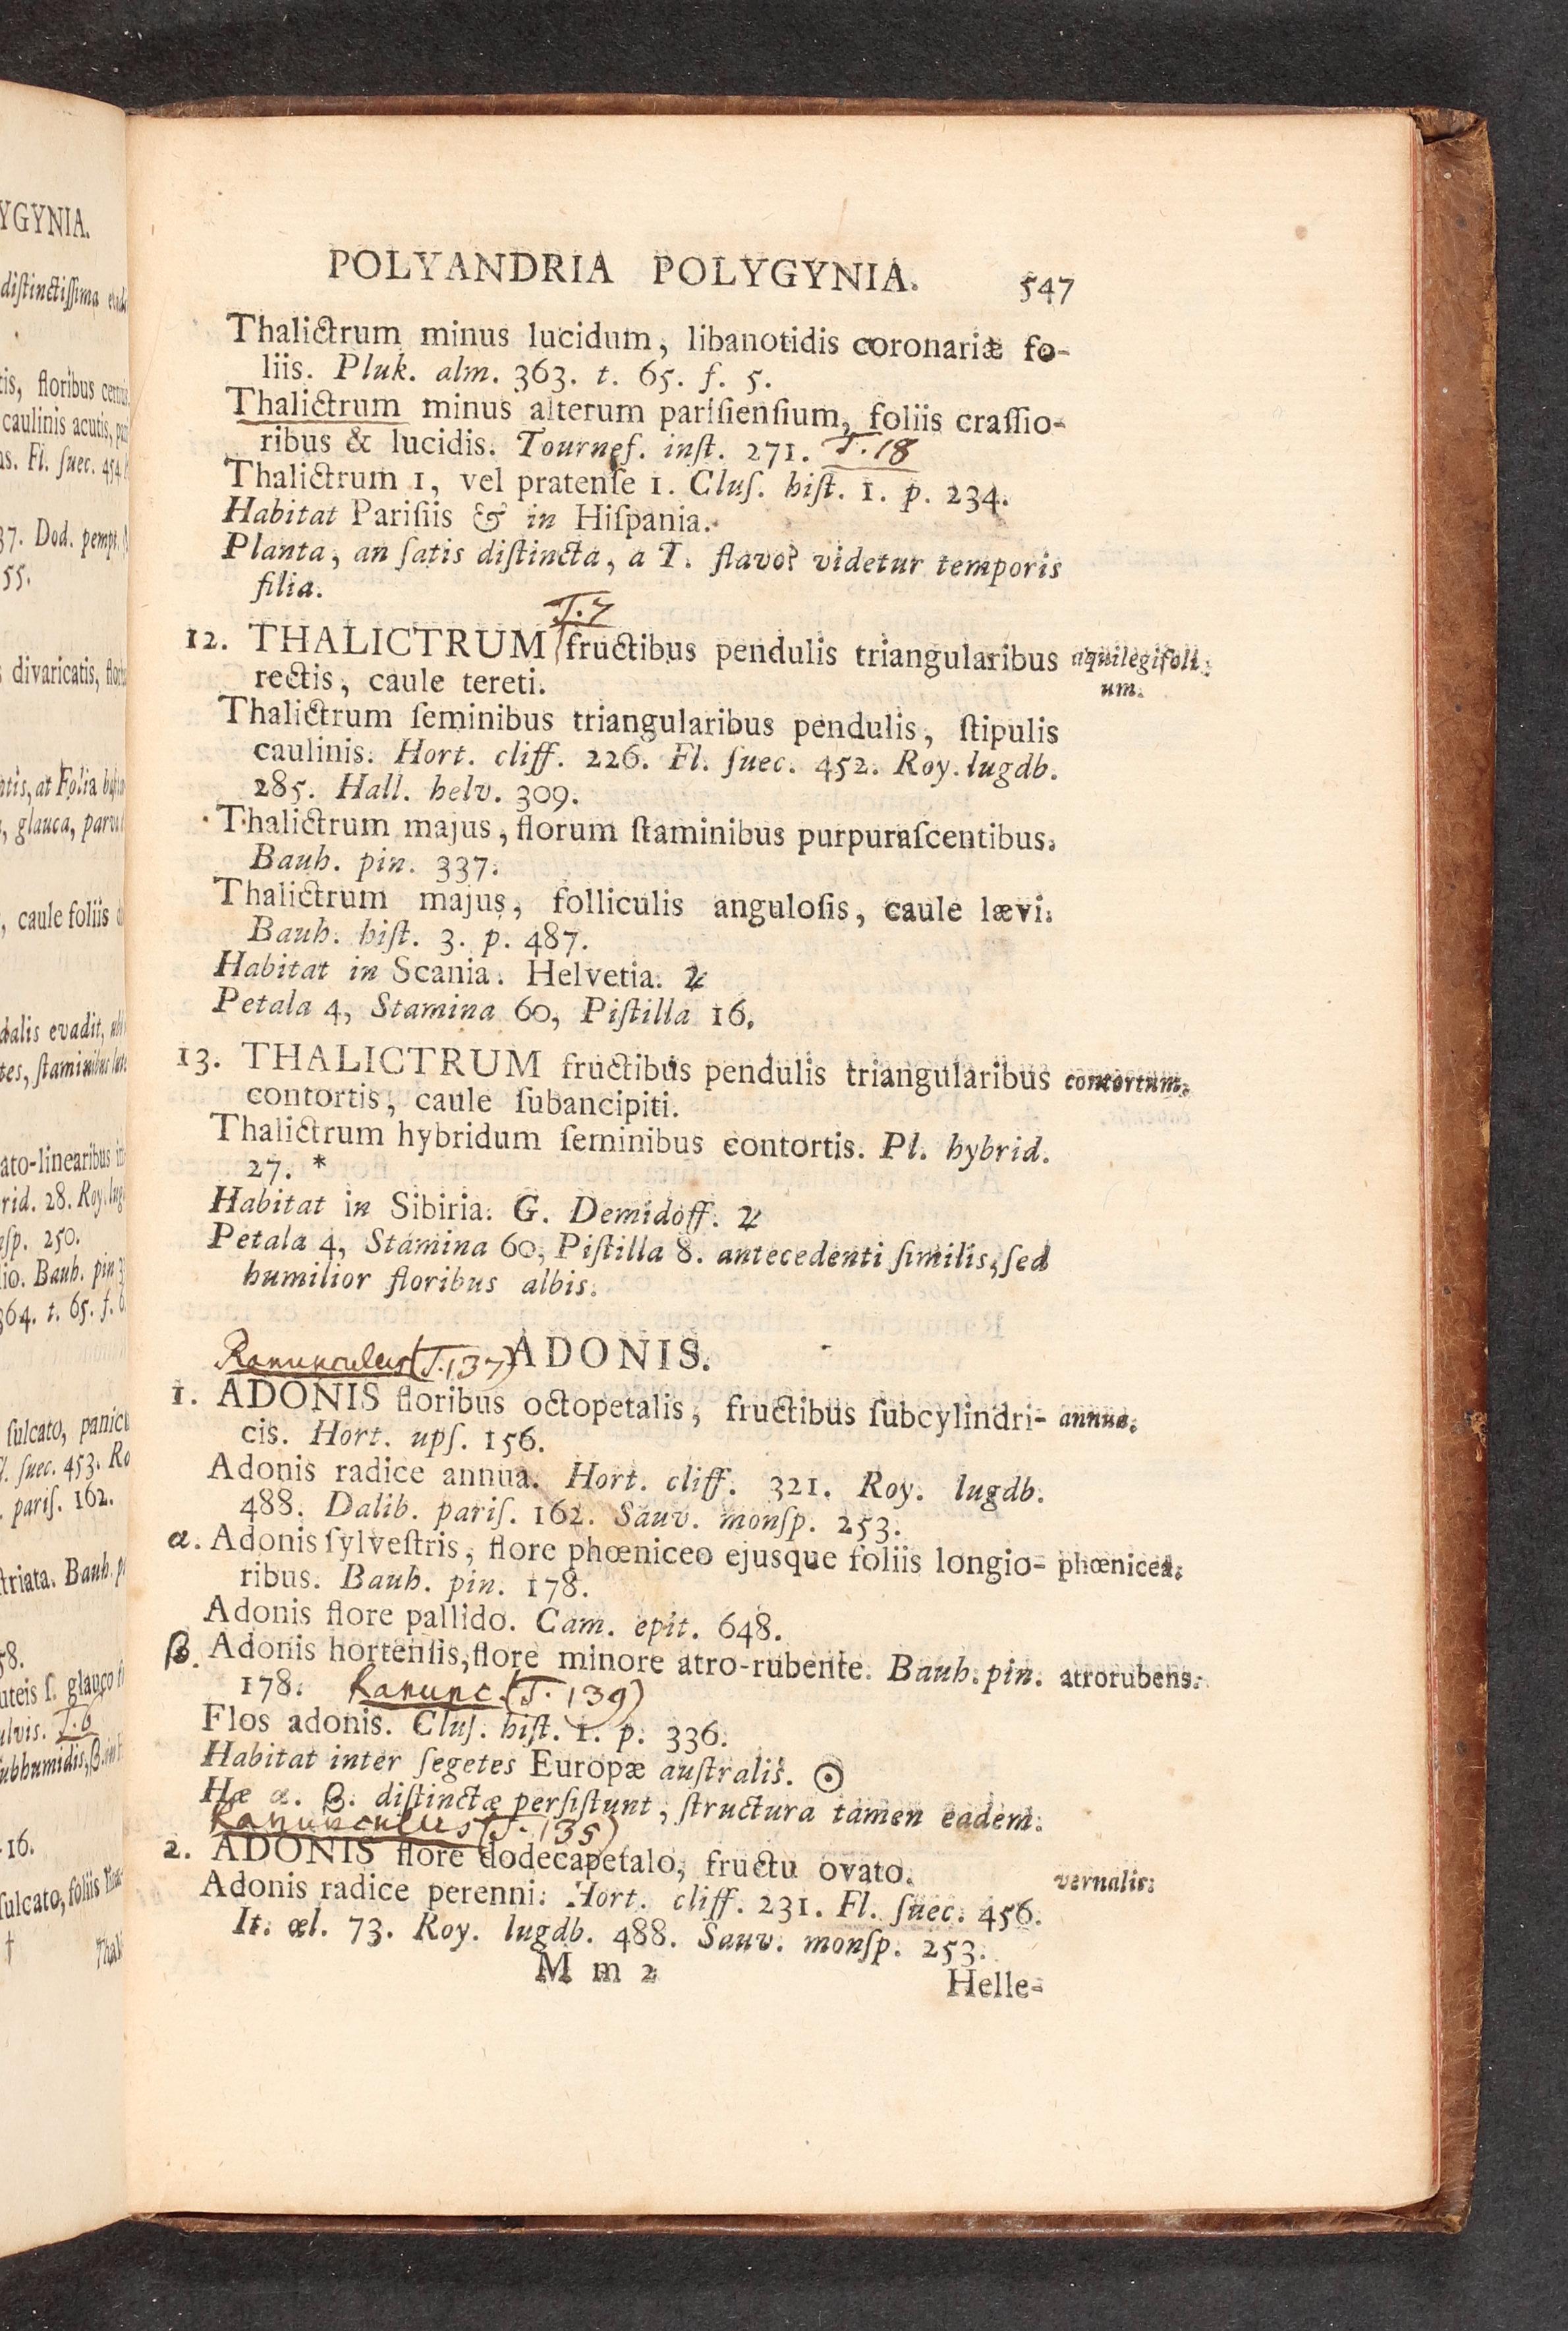 YGYNIA.
diſtinctiſſima
tis, floribus
caulinis acutis,
Fl. ſuec. 454.
37. Dod. pempt.
55.
divaricatis,
tis, at Folia
, glauca,
, caule foliis
dalis evadit,
tes, ſtaminibus
ato-linearibus
rid. 28. Roy.
ſp. 250.
lio. Bauh. pin.
364. t. 65. f. 6
ſulcato,
l. ſuec. 453.
. pariſ. 162.
ſtriata. Bauh.
58.
uteis ſ. glauco
ulvis. T. 6
ubhumidis, β.
16.
ſulcato, foliis
†
POLYANDRIA POLYGYNIA. 547
Thalictrum minus lucidum, libanotidis coronariæ fo-
liis. Pluk. alm. 363. t. 65. f. 5.
Thalictrum minus alterum pariſienſium, foliis craſſio-
ribus & lucidis. Tournef. inſt. 271. T. 18
Thalictrum 1, vel pratenſe 1. Cluſ. hiſt. 1. p. 234.
Habitat Pariſiis & in Hiſpania.
Planta, an ſatis diſtincta, a T. flavo? videtur temporis
filia.
T. 7
12. THALICTRUM fructibus pendulis triangularibus aquilegifoli-
rectis, caule tereti. um.
Thalictrum ſeminibus triangularibus pendulis, ſtipulis
caulinis. Hort. cliff. 226. Fl. ſuec. 452. Roy. lugdb.
285. Hall. helv. 309.
Thalictrum majus, florum ſtaminibus purpuraſcentibus.
Bauh. pin. 337.
Thalictrum majus, folliculis anguloſis, caule lævi.
Bauh. hiſt. 3. p. 487.
Habitat in Scania. Helvetia. ♃
Petala 4, Stamina 60, Piſtilla 16.
13. THALICTRUM fructibus pendulis triangularibus contortum.
contortis, caule ſubancipiti.
Thalictrum hybridum ſeminibus contortis. Pl. hybrid.
27. *
Habitat in Sibiria. G. Demidoff. ♃
Petala 4, Stamina 60, Piſtilla 8. antecedenti ſimilis, ſed
humilior floribus albis.
Ranunculus (T. 137) ADONIS.
1. ADONIS floribus octopetalis, fructibus ſubcylindri- annua.
cis. Hort. upſ. 156.
Adonis radice annua. Hort. cliff. 321. Roy. lugdb.
488. Dalib. pariſ. 162. Sauv. monſp. 253.
α. Adonis ſylveſtris, flore phœniceo ejusque foliis longio- phœnicea.
ribus. Bauh. pin. 178.
Adonis flore pallido. Cam. epit. 648.
β. Adonis hortenſis, flore minore atro-rubente. Bauh. pin. atrorubens.
178. Ranunc. (T. 139)
Flos adonis. Cluſ. hiſt. 1. p. 336.
Habitat inter ſegetes Europæ auſtralis. ☉
Hæ α. β. diſtinctæ perſiſtunt, ſtructura tamen eadem.
Ranunculus (T. 135)
2. ADONIS flore dodecapetalo, fructu ovato. vernalis.
Adonis radice perenni. Hort. cliff. 231. Fl. ſuec. 456.
It. œl. 73. Roy. lugdb. 488. Sauv. monſp. 253.
M m 2 Helle-